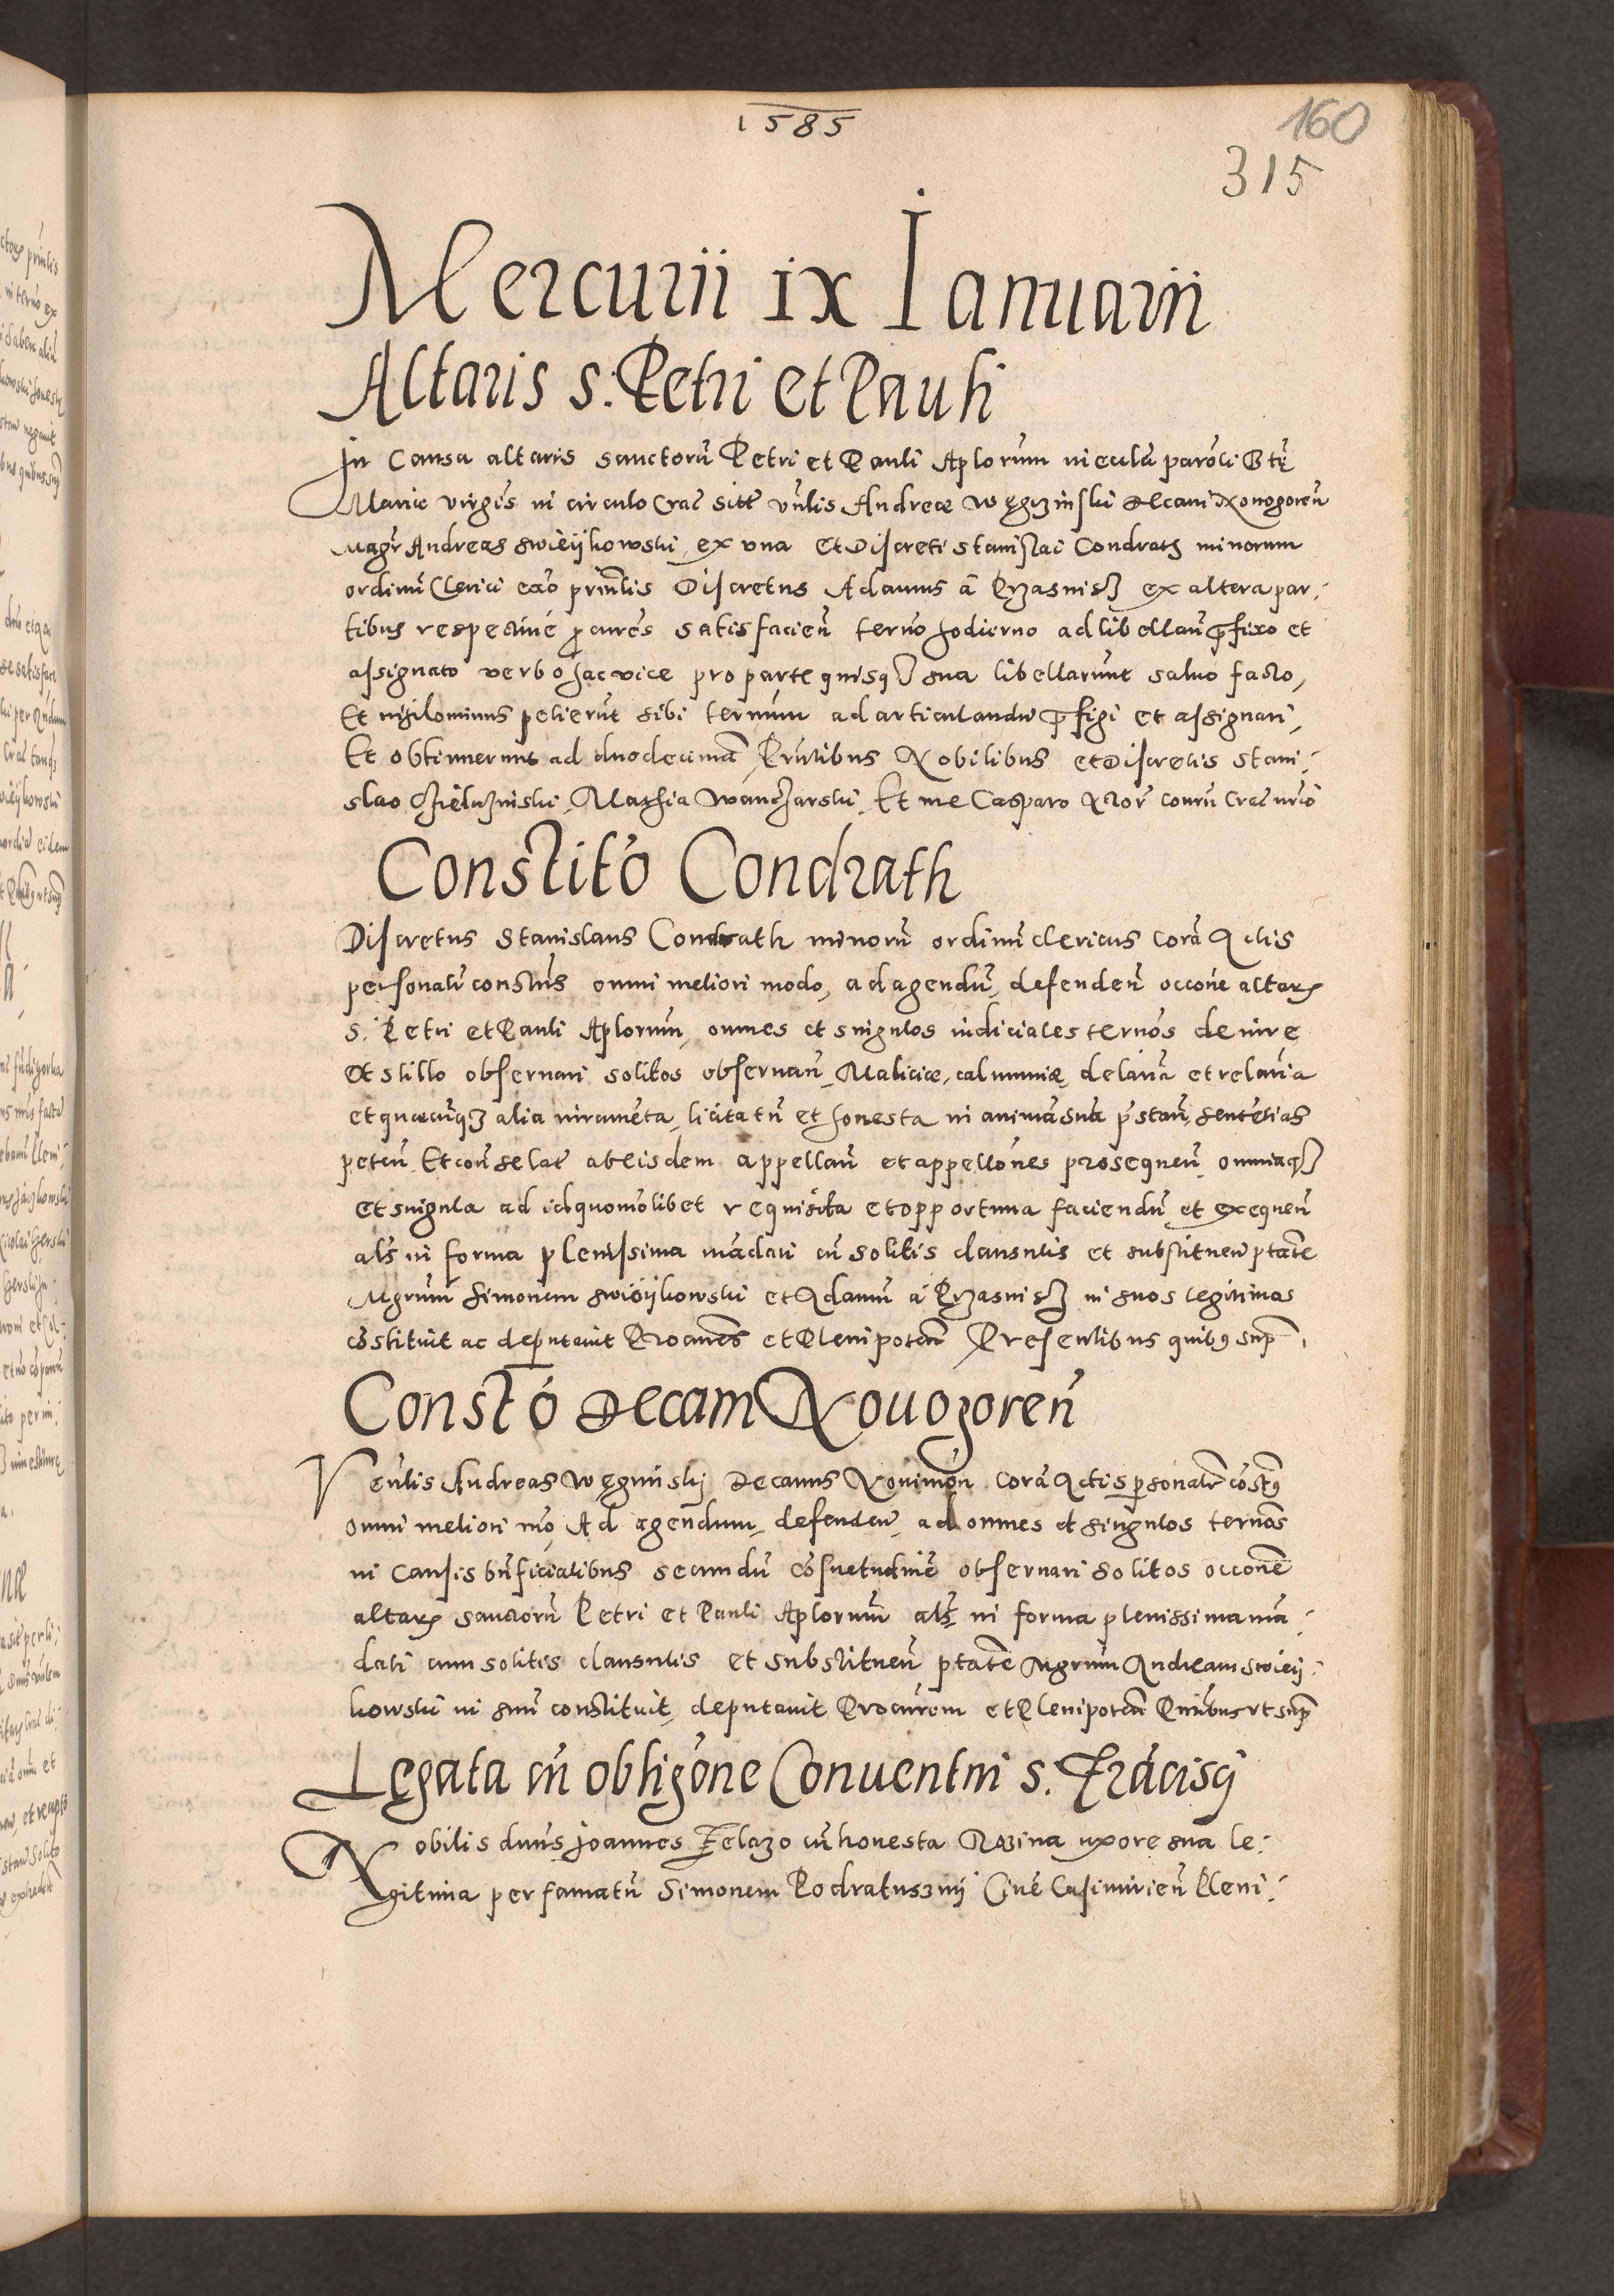 1585
160
315
Mercurii ix Ianuarii
Altaris S: Petri et Pauli
In Causa altaris sanctorũ Petri et Pauli Aplorum in ecclã parõli Btę
Marie virgĩs in circulo Crac sitũ vñlis Andreæ Węgrzinski Decani Nouogoreñ
Magr̃ Andreas swieijkowski ex vna Et Discreti stanislai Condrath minorum
ordinũ Clerici exõ prinĩlis Discretus Adamus ã Przasnis ex altera par:
tibus respectiué p̱cures satisfacieñ termõ hodierno ad libellanũ p̃fixo et
assignato verbo hac vice pro parte quisq̃ sua libellarunt saluo facto,
Et nihilominus petierũt sibi termũm ad articulandũ p̃figi et assignari,
Et obtinuerunt ad duodecimã Pñtibus Nobilibus et Discretis Stani:
slao Mathia Et me Casparo Actor̃
Constitõ Condrath
Discretus Stanislaus Condrath minorũ ordinũ clericus corã Actis
personalr̃ constũs omni meliori modo, ad agendũ, defendeñ occõne altars
s. Petri et Pauli Aplorum, omnes et singulos iudiciales termõs de iure
et stillo obseruari solitos obseruanñ Maliciæ, calumniæ, delanã et relanĩa
et quæcũq3 alia iuramẽta, licita tñ et honesta in animã suã p̃stanñ, sentẽtias
peteñ. Et ab eisdem appellanñ et appellõnes prosequeñ, omniaq3
et singula ad id quomõlibet requisita et opportuna faciendũ et exequeñ
als̃ in forma plenissima mãdati cũ solitis clausulis et substitueñ ptatẽ
Mgrũm Simonem swieijkowski et Adamũ ã Przasnis in suos legitimos
cõstituit ac deputauit Procures et Plenipoteñ Presentibus quibus sup̃
Constõ Decani Nouogoreñ
Venlis Andreas Węgrinskij Decanus Nouimoñ corã Actis psonalr̃ cõstus
omni meliori mõ, Ad agendum, defendeñ, ad omnes et singulos termõs
in Causis bñficialibus secundũ cõsuetudinẽ obseruari solitos occõne
altars sanctorũ Petri et Pauli Aplorum als̃ in forma plenissima mã:
dati cum solitis clausulis et substitueñ ptatẽ Mgrum Andream swieij:
kowski in suũ constituit, deputauit Procurem et Plenipoteñ Pñtibus vt sup̃
Legata cũ obligõne Conuentui S. Frãcisci
Nobilis dnus Joannes Felazo cũ honesta Rozina uxore sua le:
gitima per famatũ Simonem Podratuszny Ciuẽ Casimirieñ Pleni: